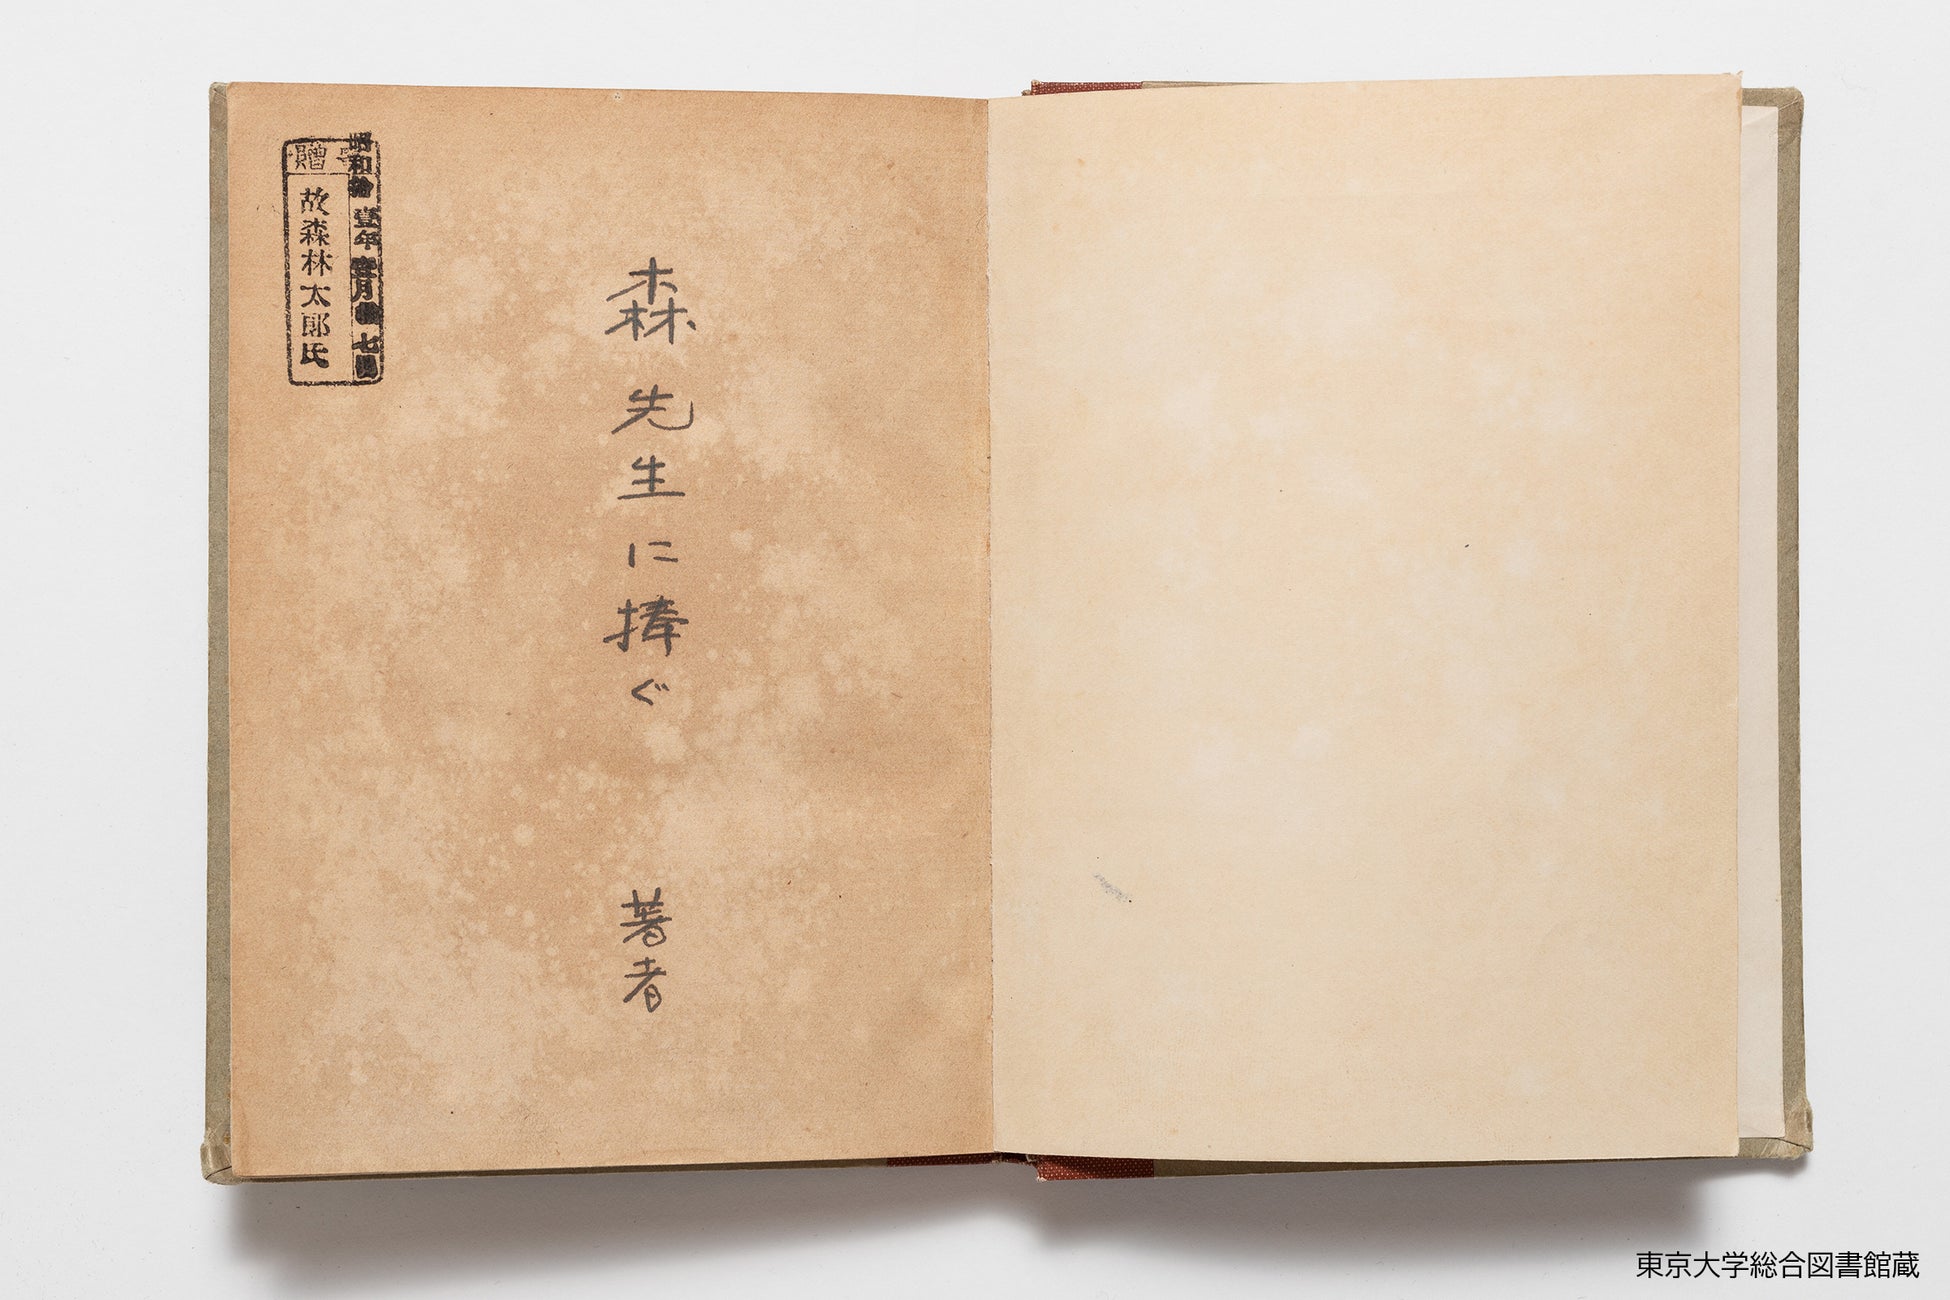 森先生に捧ぐ
著者
寄贈
故森林太郎氏
昭和拾壹年壹月 七日
東京大学総合図書館蔵